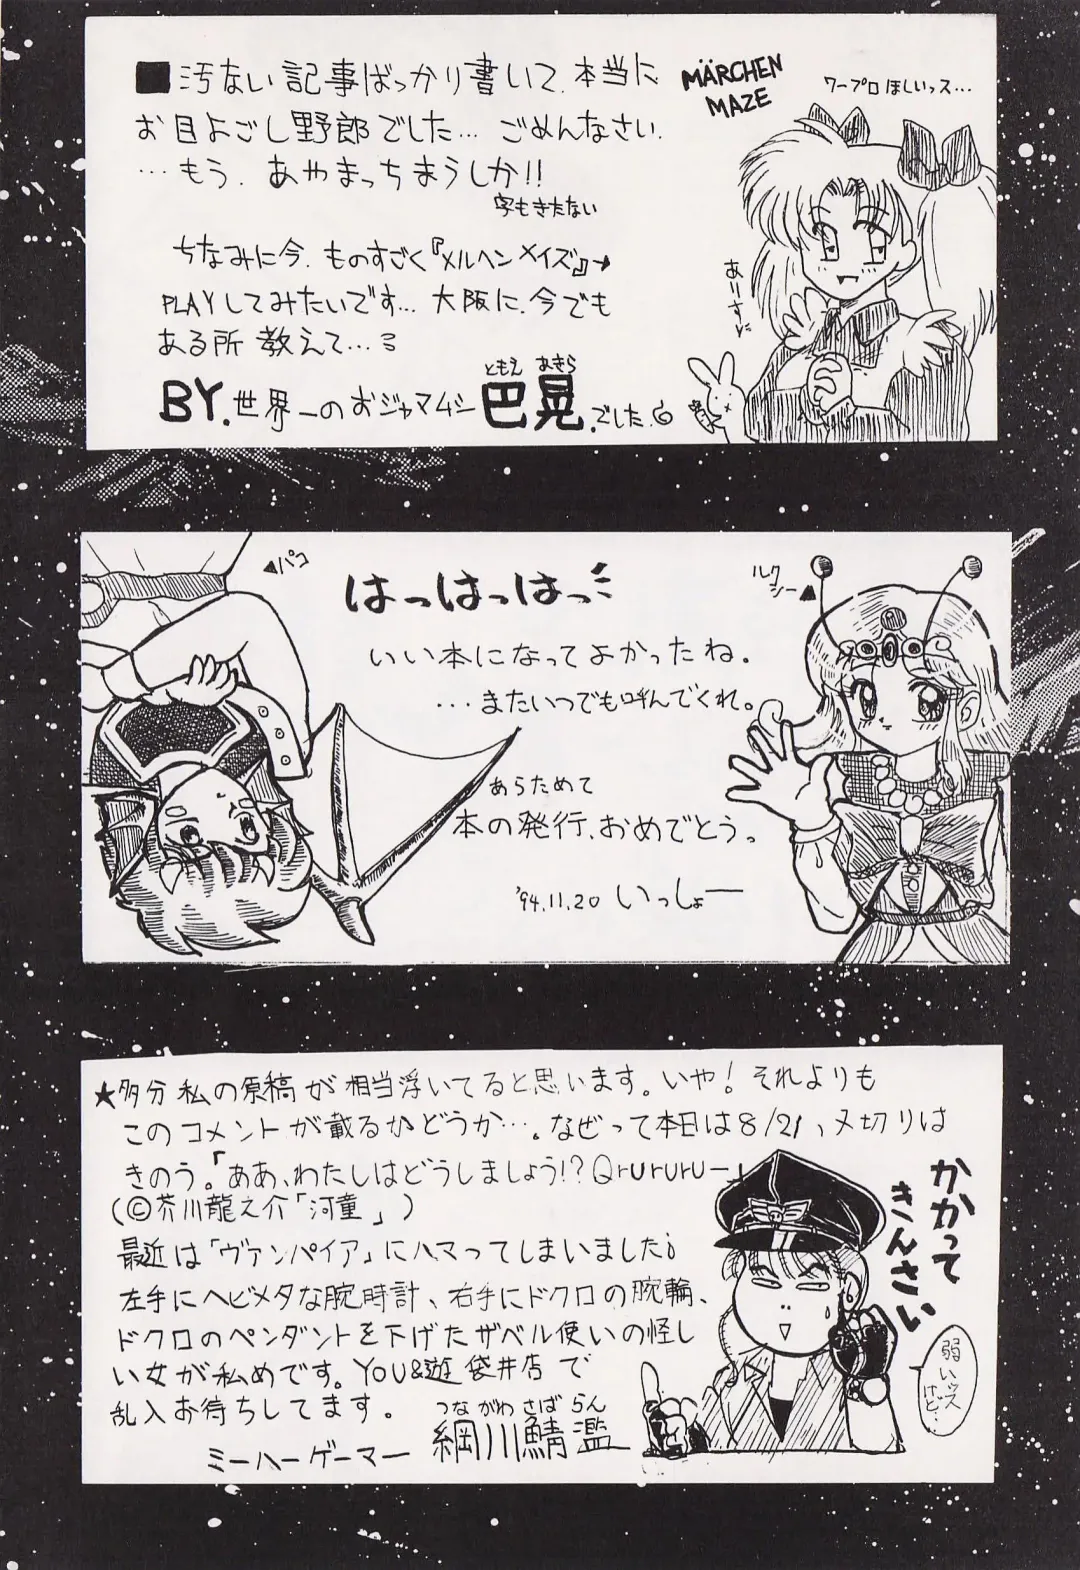 ■汚ない記事ばっかり書いて、本当に
お目よごし野郎でした… ごめんなさい.
…もう. あやまっちまうしか!!
字もきたない
ちなみに今. ものすごく『メルヘンメイズ』→
PLAYしてみたいです… 大阪に. 今でも
ある所 教えて…
BY. 世界一のおジャマムシ 巴晃. でした.
ともえ あきら
MÄRCHEN
MAZE
ワープロほしいっス…
ありす
▲パコ
はっはっはっ
いい本になってよかったね。
...またいつでも呼んでくれ。
あらためて
本の発行、おめでとう。
'94.11.20 いっしょー
ルク
シー▲
★多分 私の原稿が相当浮いてると思います。いや！それよりも
このコメントが載るかどうか…。なぜって本日は8/21、〆切りは
きのう。「ああ、わたしはどうしましょう!? Qrururu—」
(©芥川龍之介「河童」)
最近は「ヴァンパイア」にハマってしまいました!
左手にヘビメタな腕時計、右手にドクロの腕輪、
ドクロのペンダントを下げたザベル使いの怪し
い女が私めです。YOU&遊 袋井店で
乱入お待ちしてます。
つながわ さば らん
ミーハーゲーマー 綱川鯖濫
かかって
きんさい
弱いっス
けど…